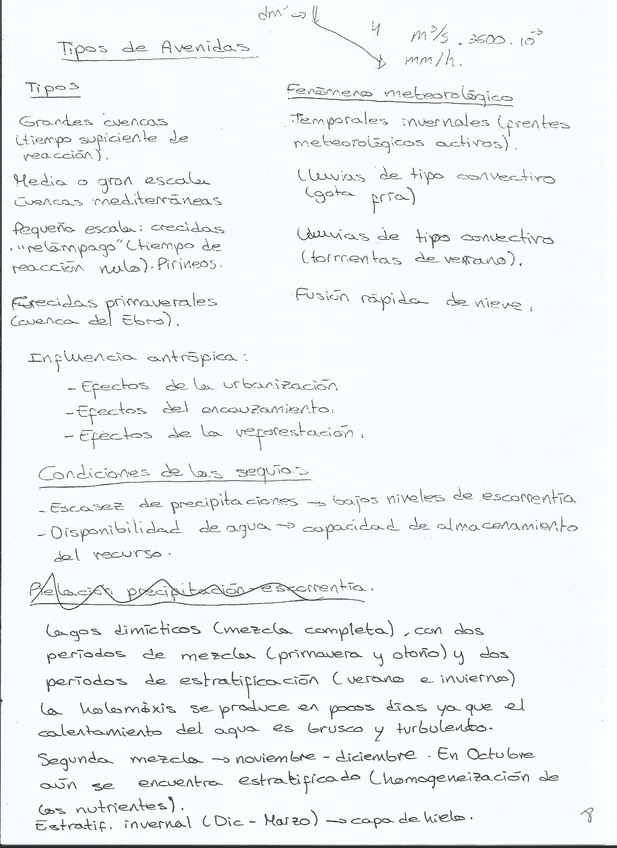 dm³ →
4 m³/s . 3600 . 10⁻³
mm/h.
Tipos de Avenidas.
Tipos
Fenómeno meteorológico
Grandes cuencas
(tiempo suficiente de
reacción).
Temporales invernales (frentes
meteorológicos activos).
Media o gran escala
cuencas mediterráneas
Lluvias de tipo convectivo
(gota fría)
Pequeña escala: crecidas
"relámpago" (tiempo de
reacción nulo). Pirineos.
Lluvias de tipo convectivo
(torrmentas de verano).
Crecidas primaverales
(cuenca del Ebro).
Fusión rápida de nieve.
Influencia antrópica:
- Efectos de la urbanización
- Efectos del encauzamiento.
- Efectos de la reforestación.
Condiciones de las sequías
- Escasez de precipitaciones → bajos niveles de escorrentía
- Disponibilidad de agua → capacidad de almacenamiento
del recurso.
Relación precipitación escorrentía.
Lagos dimícticos (mezcla completa), con dos
períodos de mezcla (primavera y otoño) y dos
períodos de estratificación (verano e invierno)
La holomáxis se produce en pocos días ya que el
calentamiento del agua es brusco y turbulento.
Segunda mezcla → noviembre - diciembre. En Octubre
aún se encuentra estratificado (homogeneización de
los nutrientes).
Estratif. invernal (Dic - Marzo) → capa de hielo.
8